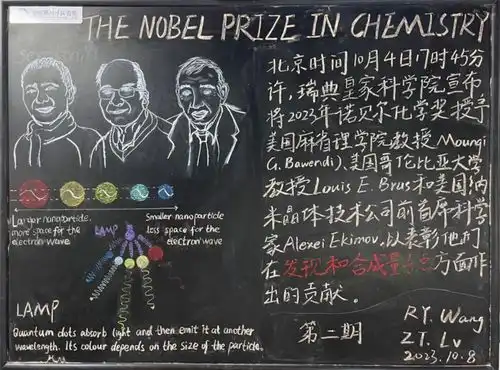 THE NOBEL PRIZE IN CHEMISTRY
北京时间10月4日17时45分
许,瑞典皇家科学院宣布
将2023年诺贝尔化学奖授予
美国麻省理学院教授Moungi
G. Bawendi)、美国哥伦比亚大学
教授Louis E. Brus和美国纳
米晶体技术公司前首席科学
家Alexei Ekimov.以表彰他们
在发现和合成量子点方面作
出的贡献。
Larger nanoparticle.
more space for the
electron wave
Smaller nanoparticle
less space for the
electron wave
LAMP
LAMP
Quantum dots absorb light and then emit it at another
wavelength. Its colour depends on the size of the particle.
第二期
RY. Wang
ZT. Lv
2023.10.8